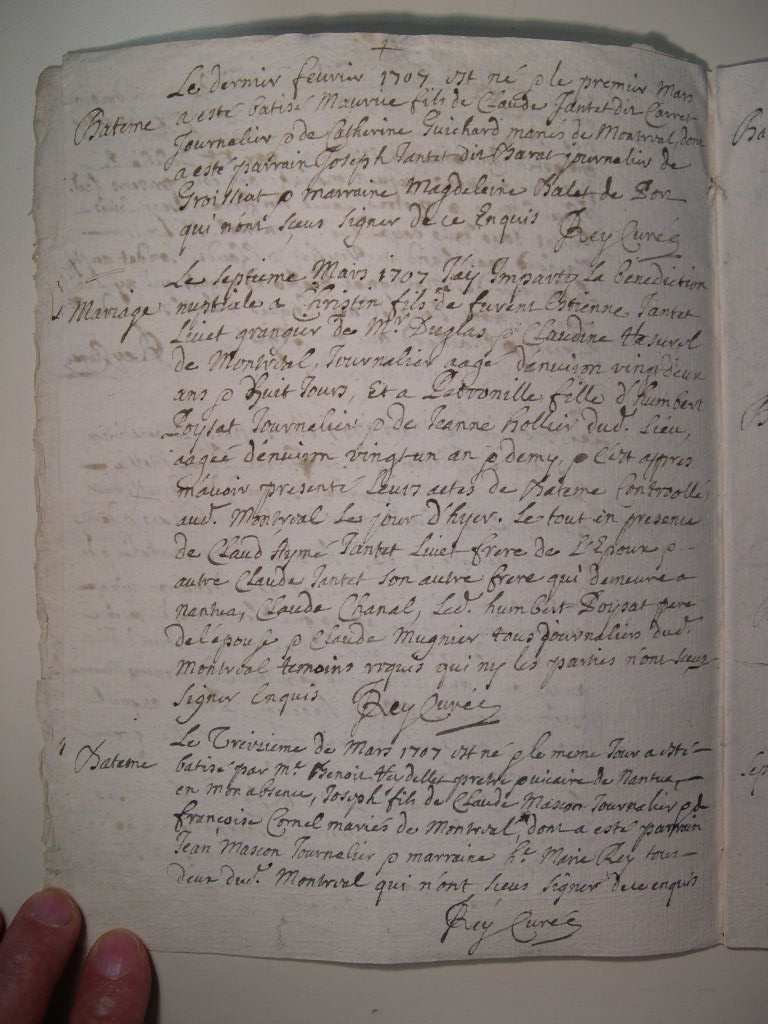 Le dernir fevrier 1707 est né & le premier Mars
Bateme
a esté batisé Maurice fils de Claude Jantet dit Carret
Journalier & de Catherine Guichard mariés de Montreal, dont
a esté parrain Joseph Jantet dit Barat journalier de
Groissiat & marraine Magdeleine Balet de Port
qui nont sceus signer de ce Enquis Rey Curé
Le septieme Mars 1707 J'ay Imparty La benediction
Mariage
nuptiale a Christin fils de furent Estienne Jantet
Livet granger de Mr. Duglas & Claudine
de Montreal, Journalier aagé d'environ vingt deux
ans & Huit Jours, Et a Petronille fille d'humbert
Poysat Journalier & de Jeanne hollier dud. Lieu,
aagée d'environ vingt un an & demy, & C'est appres
m'avoir presenté Leurs actes de Bateme Controollé
aud. Montreal Le jour d'hyer. Le tout en presence
de Claud Aymé Jantet Livet frere de L'Epoux &
autre Claude Jantet son autre frere qui demeure a
Nantua, Claude Chanal, Led. humbert Poysat pere
de l'épouse & Claude Mugnier tous journaliers dud.
Montreal temoins requis qui ny les parties n'ont sceus
signer Enquis Rey Curé
Le Treizieme de Mars 1707 est né & le meme Jour a esté
Bateme
batisé par Mr. Benoit pretre & vicaire de Nantua,
en mon absence, Joseph fils de Claude Mascon Journalier & de
françoise Cornel mariés de Montreal, dont a esté parrain
Jean Mascon Journalier & marraine hte. Marie Rey tous
deux dud. Montreal qui n'ont sceus signer de ce enquis
Rey Curé